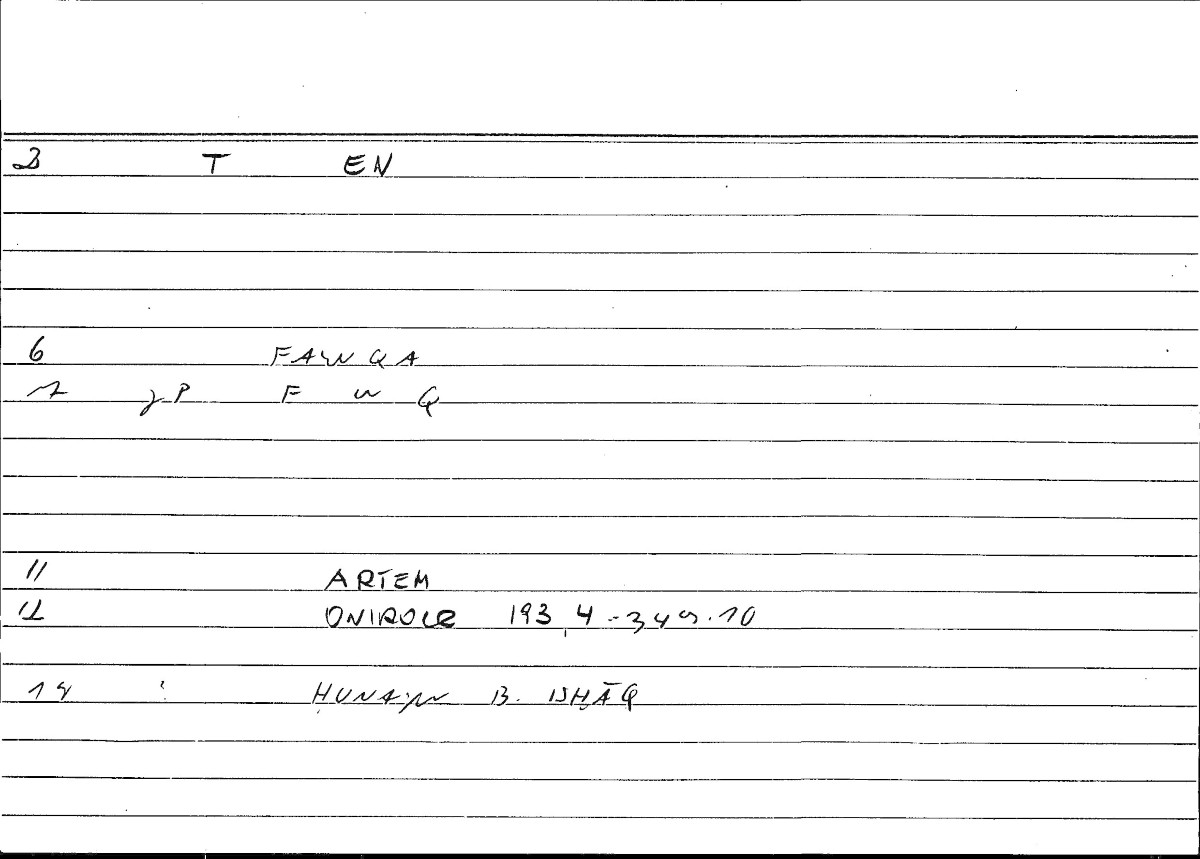 2 T EN
6 FAWQA
7 P F W Q
11 ARTEM
12 ONIROCR 193,4-349.10
14 : HUNAYN B. ISḤĀQ